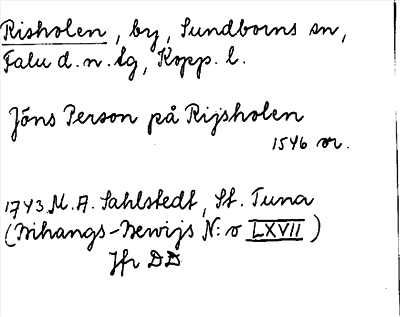 Risholen, by, Sundborns sn,
Falu d.n. tg, Kopp. l.
Jöns Person på Rijsholen
1546 vr.
1743 M. A. Sahlstedt, St. Tuna
(Bihangs-Bewijs N:o LXVII)
Jfr DD